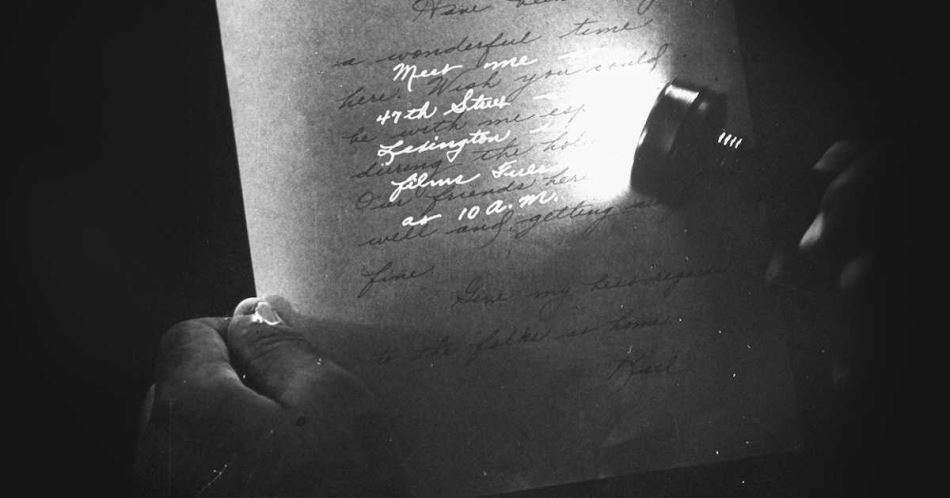 Have been
a wonderful time
Meet me
here. Wish you could
47th Street
be with me esp
Lexington
during the hol
films Tues
Our friends here
at 10 A.M.
well and getting
fine.
Give my best regards
to the folks at home.
Karl